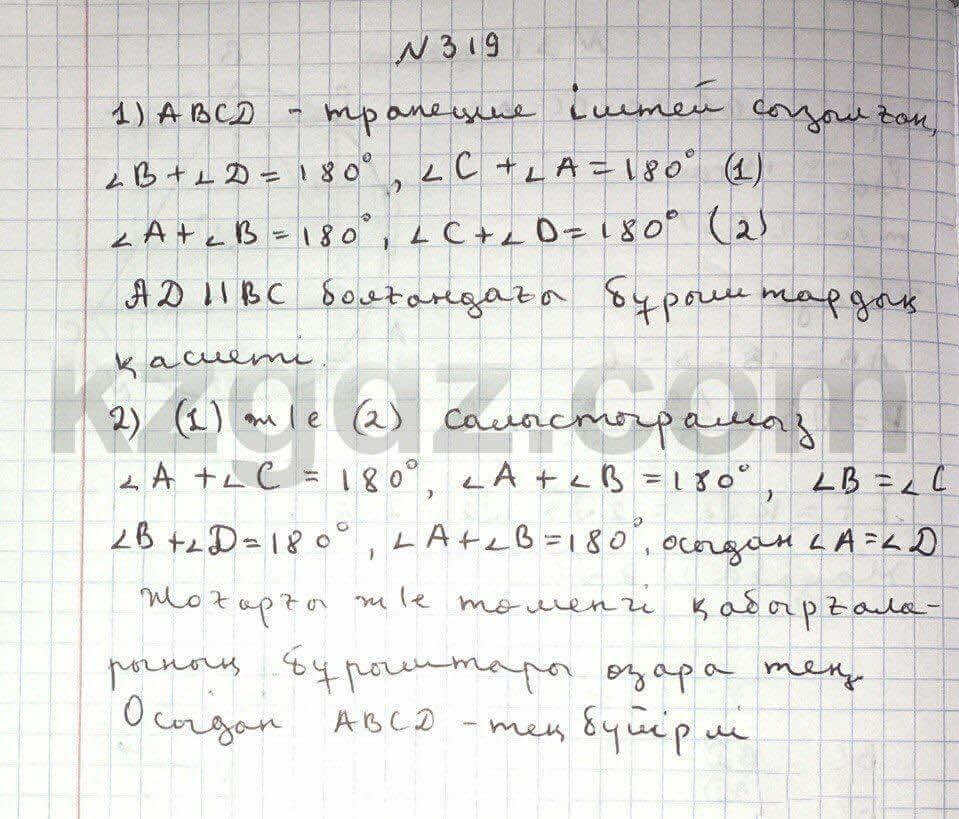 N 319
1) ABCD - трапеция іштей сызылған,
∠B + ∠D = 180°, ∠C + ∠A = 180° (1)
∠A + ∠B = 180°, ∠C + ∠D = 180° (2)
AD || BC болғандағы бұрыштардың
қасиеті.
kzgdz.com
2) (1) және (2) салыстырамыз
∠A + ∠C = 180°, ∠A + ∠B = 180°, ∠B = ∠C
∠B + ∠D = 180°, ∠A + ∠B = 180°, осыдан ∠A = ∠D
Жоғарғы және төменгі қабырғала-
рының бұрыштары өзара тең.
Осыдан ABCD - тең бүйірлі